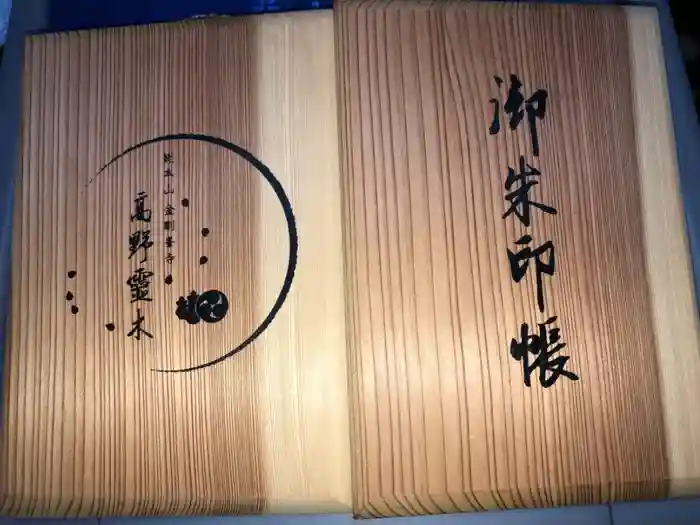 御朱印帳
総本山金剛峯寺
高野靈木